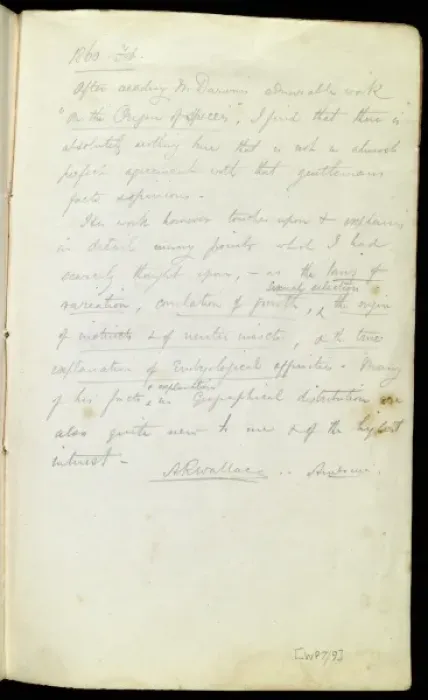 1860. Feb.
After reading Mr Darwin's admirable work
"On the Origin of Species", I find that there is
absolutely nothing here that is not in almost
perfect agreement with that gentlemans
facts & opinions.
His work however touches upon & explains
in detail many points which I had
scarcely thought upon, - as the laws of
variation, correlation of growth, sexual selection, the origin
of instincts & of neuter insects, & the true
explanation of Embryological affinities. Many
of his facts & explanations in Geographical distribution are
also quite new to me & of the highest
interest -
ARWallace .. Amboina.
[WP7/9]